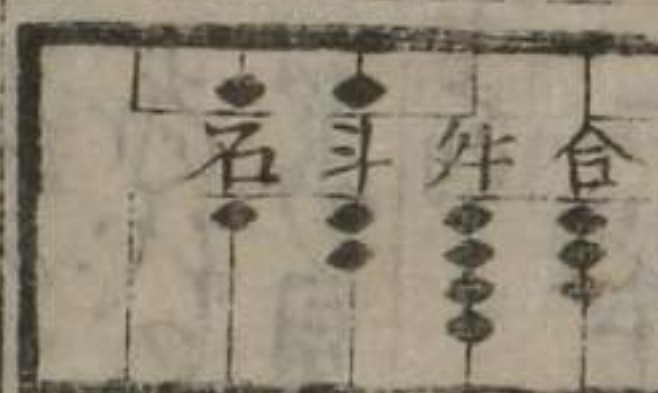 石斗升合